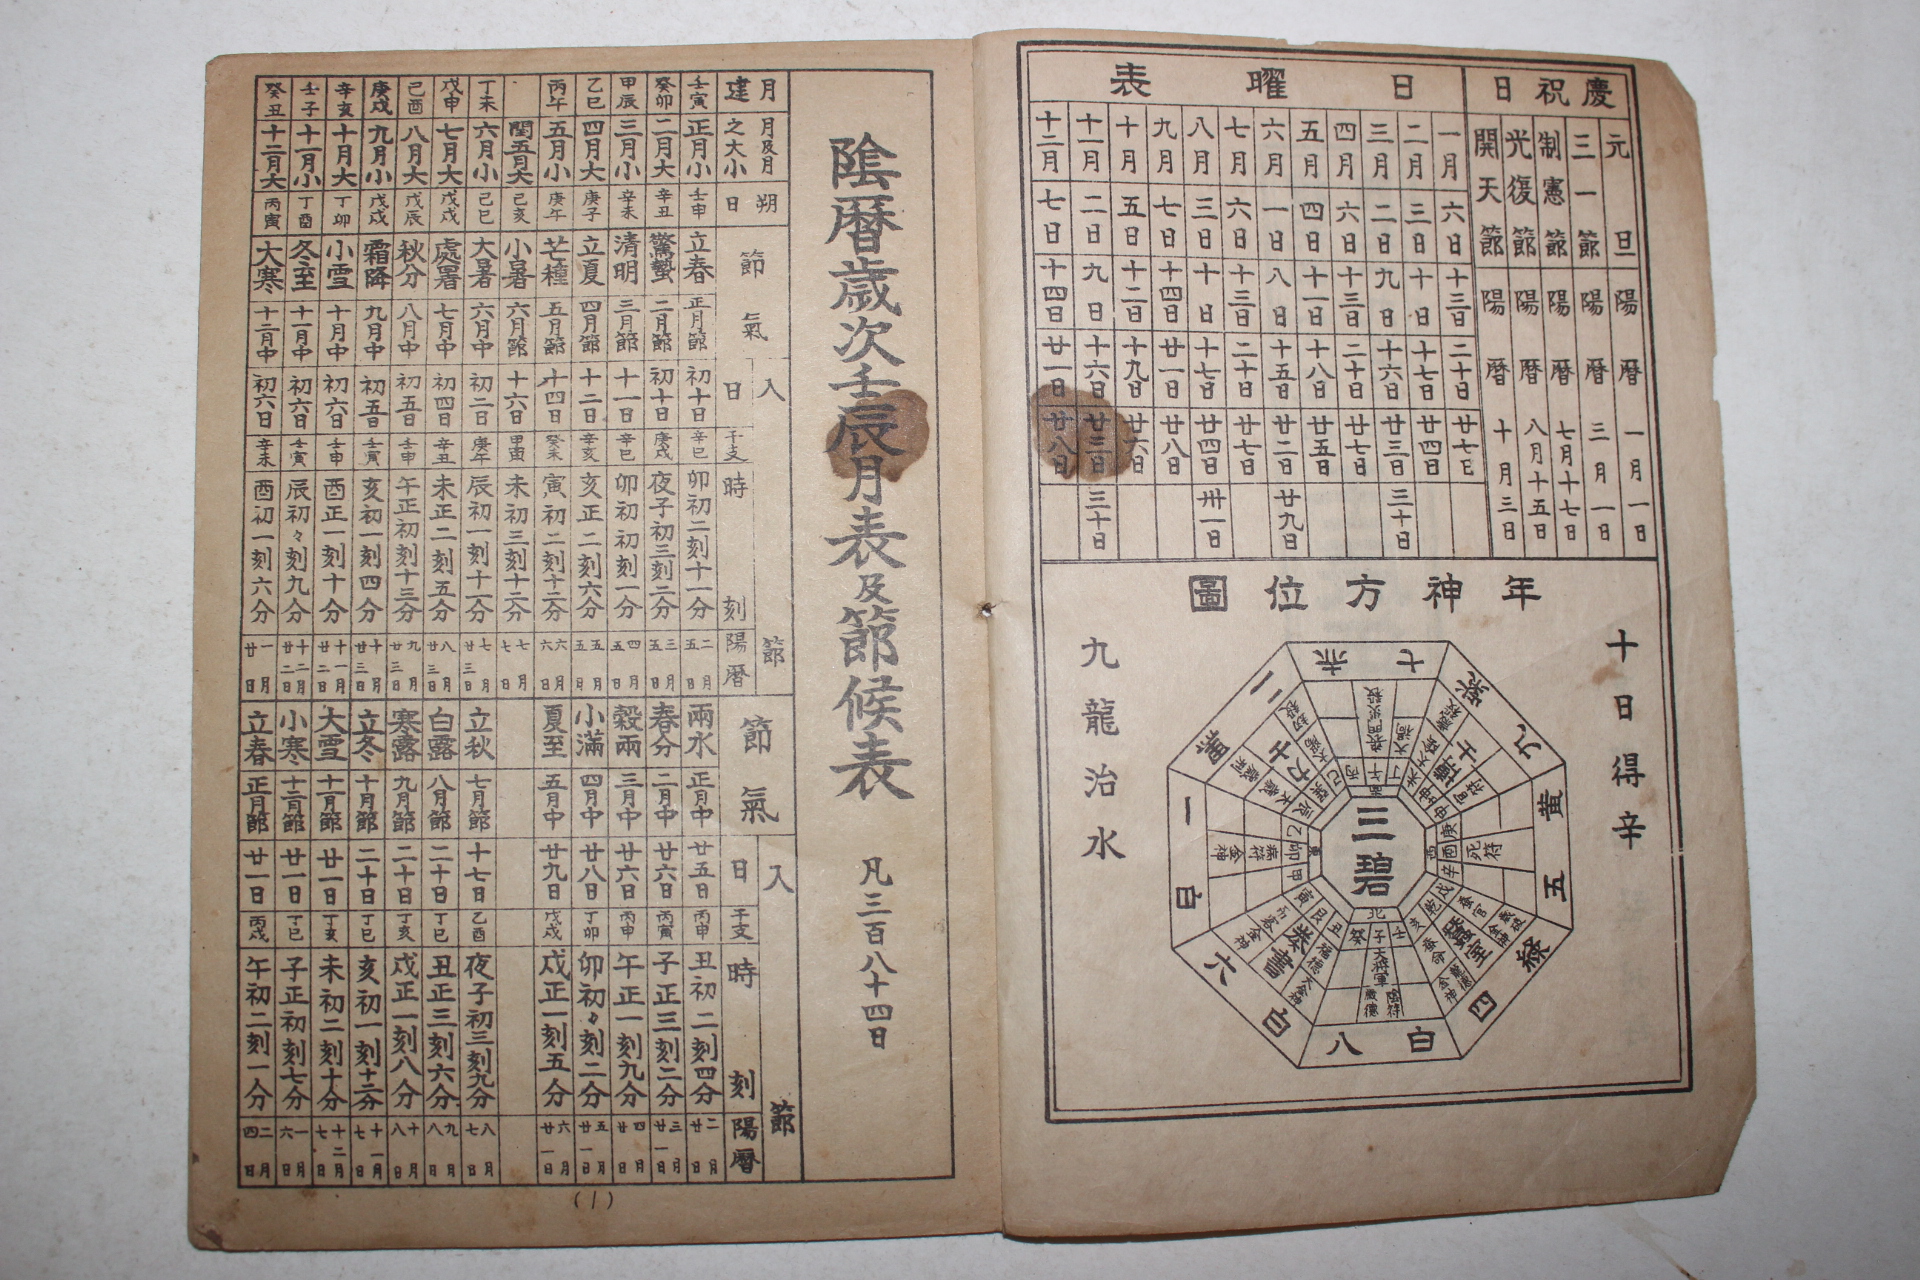 慶祝日
元旦 陽暦 一月一日
三一節 陽暦 三月一日
制憲節 陽暦 七月十七日
光復節 陽暦 八月十五日
開天節 陽暦 十月三日
日曜表
一月 六日 十三日 二十日 廿七日
二月 三日 十日 十七日 廿四日
三月 二日 九日 十六日 廿三日 三十日
四月 六日 十三日 二十日 廿七日
五月 四日 十一日 十八日 廿五日
六月 一日 八日 十五日 廿二日 廿九日
七月 六日 十三日 二十日 廿七日
八月 三日 十日 十七日 廿四日 卅一日
九月 七日 十四日 廿一日 廿八日
十月 五日 十二日 十九日 廿六日
十一月 二日 九日 十六日 廿三日 三十日
十二月 七日 十四日 廿一日 廿八日
年神方位圖
十日得辛
九龍治水
三碧
七赤
二黒
九紫
一白
五黄
六白
四緑
八白
陰暦歳次壬辰月表及節候表
凡三百八十四日
月建 月及月之大小 朔日 節氣 入節 日 干支 時刻 陽暦 節氣 入節 日 干支 時刻 陽暦
壬寅 正月小 壬申 立春 正月節 初十日 辛巳 卯初二刻十一分 二月五日 雨水 正月中 廿五日 丙申 丑初二刻四分 二月廿日
癸卯 二月大 辛丑 驚蟄 二月節 初十日 庚戌 夜子初三刻二分 三月五日 春分 二月中 廿六日 丙寅 子正三刻二分 三月廿一日
甲辰 三月小 辛未 清明 三月節 十一日 辛巳 卯初初刻一分 四月五日 穀雨 三月中 廿六日 丙申 午正一刻九分 四月廿日
乙巳 四月大 庚子 立夏 四月節 十二日 辛亥 亥正二刻六分 五月五日 小滿 四月中 廿八日 丁卯 卯初々刻二分 五月廿一日
丙午 五月小 庚午 芒種 五月節 十四日 癸未 寅初二刻十二分 六月六日 夏至 五月中 廿九日 戊戌 戌正一刻五分 六月廿一日
閏五月大 己亥 小暑 六月節 十六日 甲寅 未初三刻十二分 七月七日
丁未 六月小 己巳 大暑 六月中 初二日 庚午 辰初一刻十一分 七月廿三日 立秋 七月節 十七日 乙酉 夜子初三刻九分 八月七日
戊申 七月大 戊戌 處暑 七月中 初四日 辛丑 未正二刻五分 八月廿三日 白露 八月節 二十日 丁巳 丑正三刻六分 九月八日
己酉 八月大 戊辰 秋分 八月中 初五日 壬申 午正初刻十三分 九月廿三日 寒露 九月節 二十日 丁亥 戌正一刻八分 十月八日
庚戌 九月小 戊戌 霜降 九月中 初五日 壬寅 亥初一刻四分 十月廿三日 立冬 十月節 二十日 丁巳 亥初一刻十二分 十一月七日
辛亥 十月大 丁卯 小雪 十月中 初六日 壬申 酉正一刻十分 十一月廿二日 大雪 十一月節 廿一日 丁亥 未初二刻十分 十二月七日
壬子 十一月小 丁酉 冬至 十一月中 初六日 壬寅 辰初々刻九分 十二月廿二日 小寒 十二月節 廿一日 丁巳 子正初刻七分 一月六日
癸丑 十二月大 丙寅 大寒 十二月中 初六日 辛未 酉初一刻六分 一月廿日 立春 正月節 廿一日 丙戌 午初二刻一分 二月四日
(1)